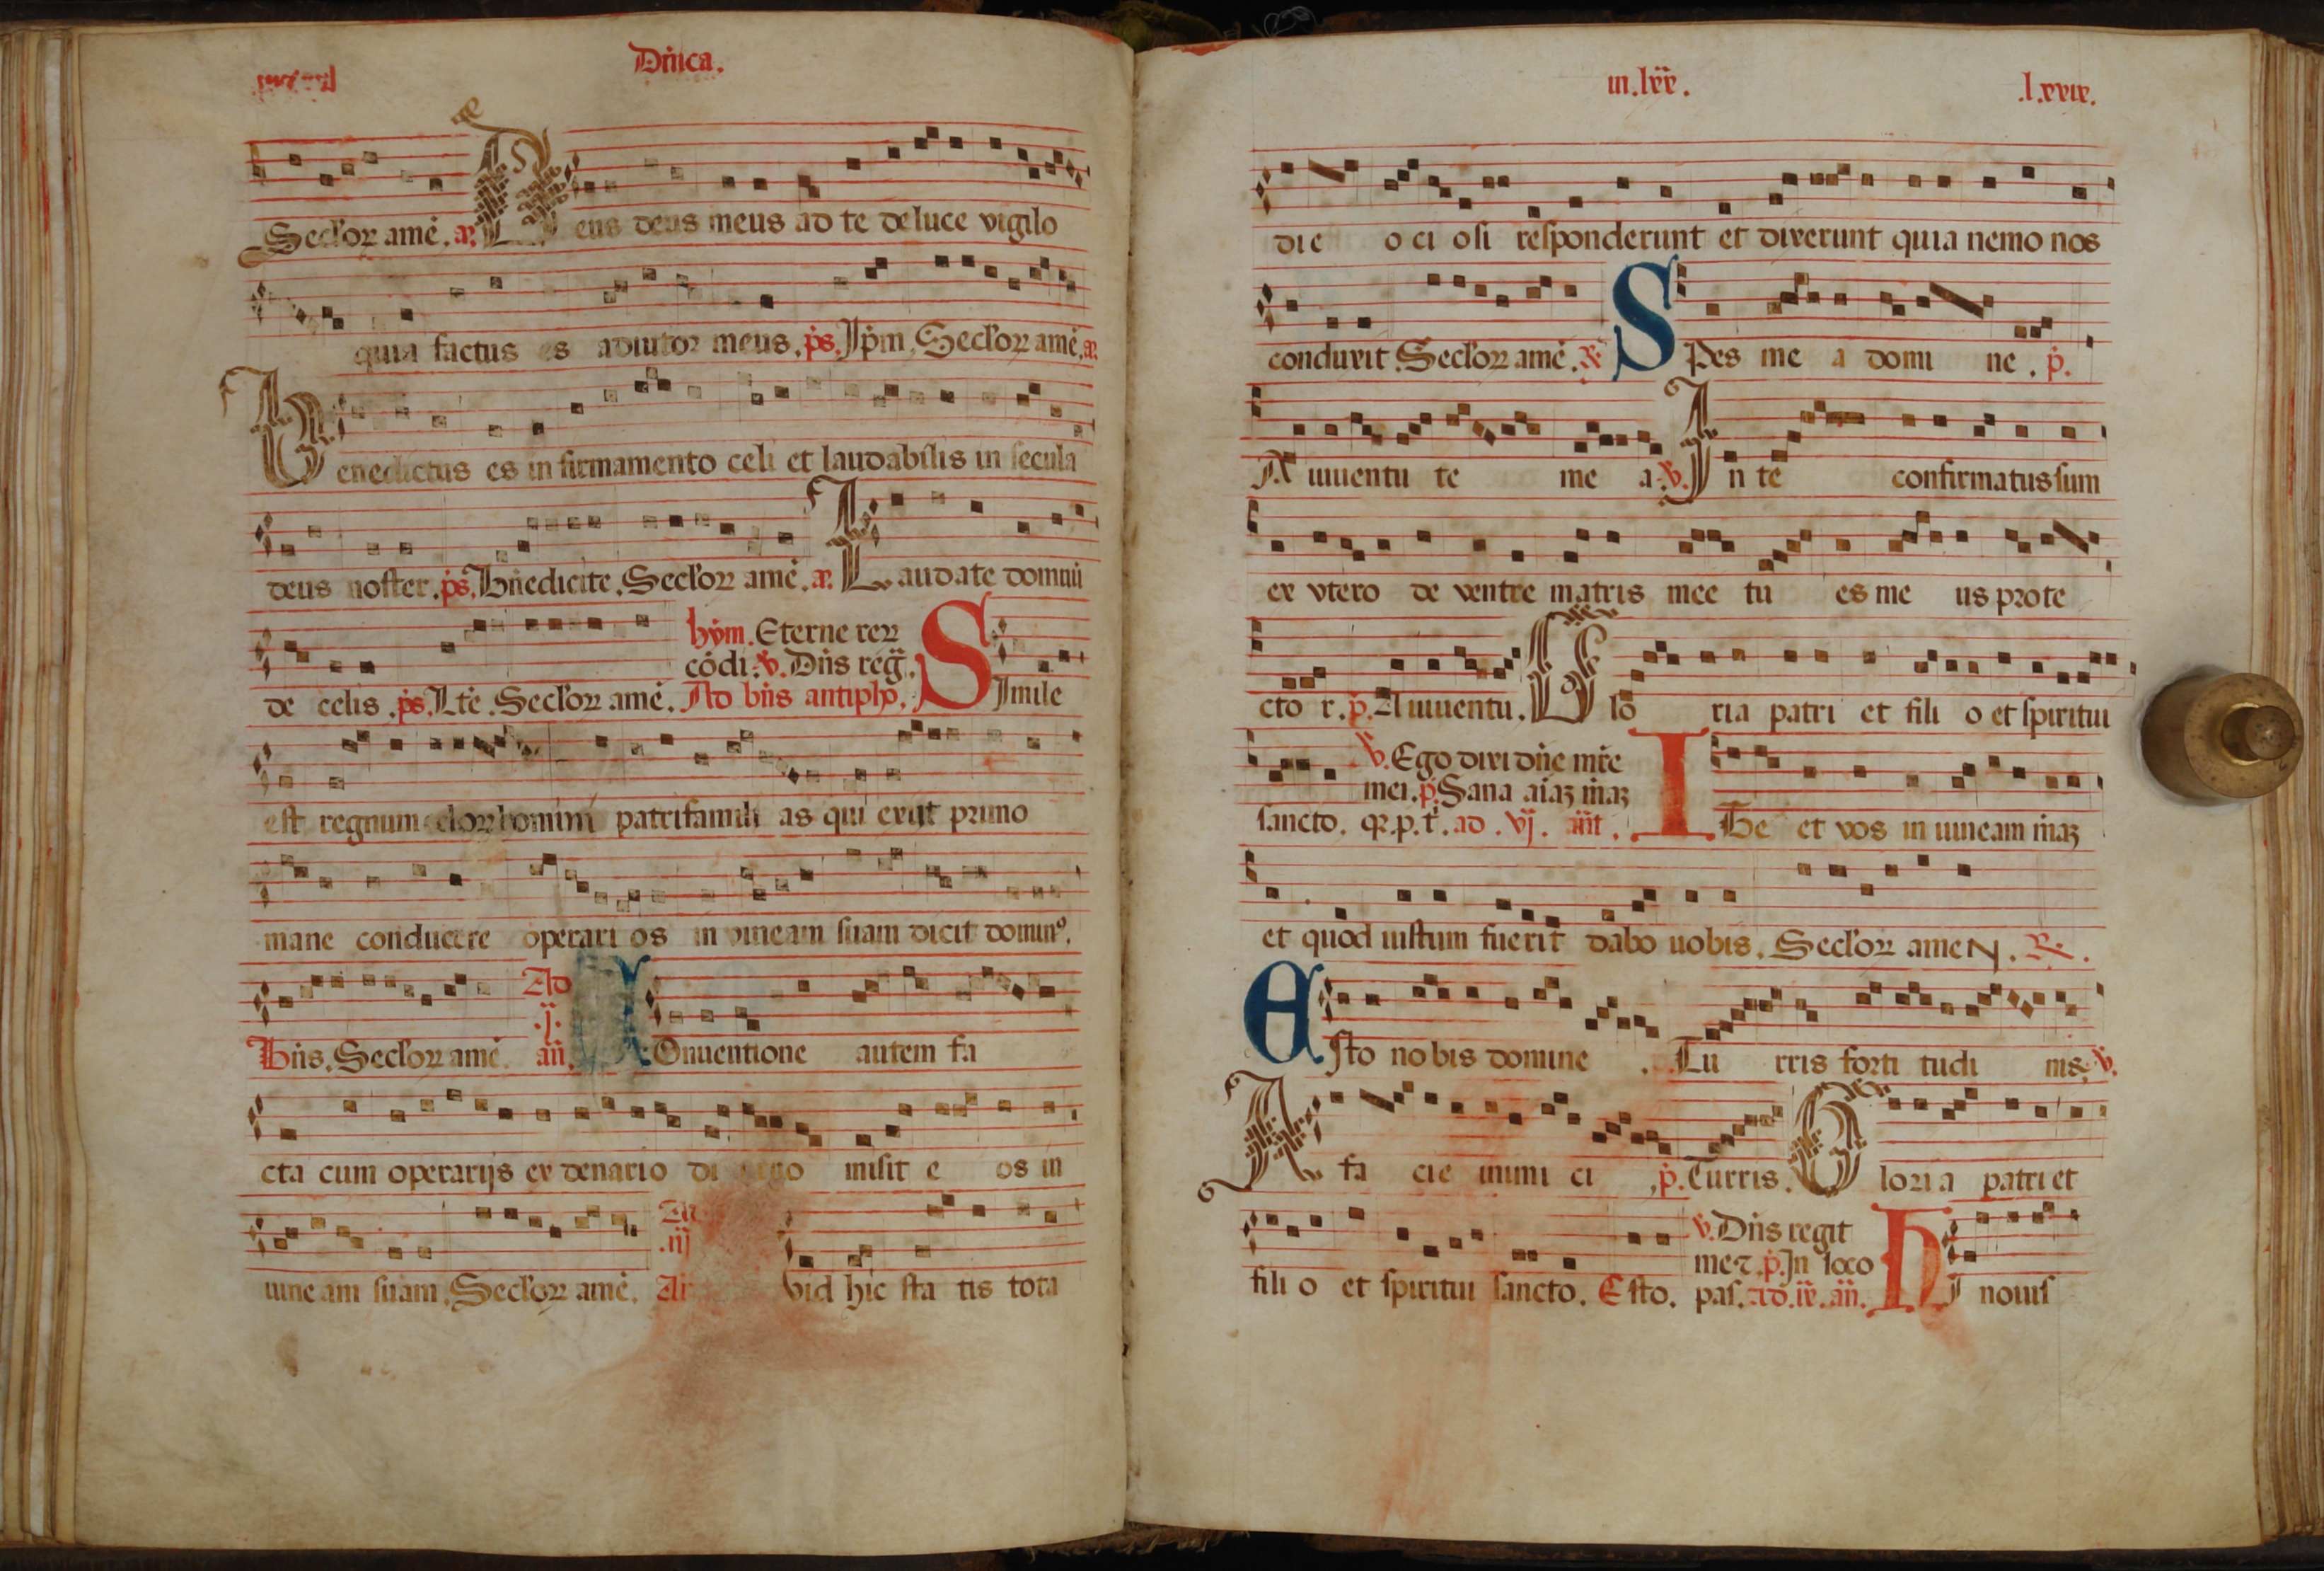 Dn̄ica.
Secl'oꝝ amē. a. Deus deus meus ad te de luce vigilo
quia factus es adiutor meus. ps. Ip̄m. Secl'oꝝ amē. a.
Benedictus es in firmamento celi et laudabilis in secula
deus noster. ps. Bn̄edicite. Secl'oꝝ amē. a. Laudate dominū
hȳm. Eterne reꝝ
cōdi. v. Dn̄s reḡ.
de celis. ps. Lte. Secl'oꝝ amē. Ad bn̄s antiph̄. Simile
est regnum celoꝝ homini patrifamili as qui exiit primo
mane conducere operari os in vineam suam dicit dominꝰ.
Ad
.j.
Bn̄s. Secl'oꝝ amē. an̄. COnuentione autem fa
cta cum operarijs ex denario di misit e os in
.iij
uine am suam. Secl'oꝝ amē. vid hic sta tis tota
in.lxx. .l.xxix.
die o ci osi responderunt et dixerunt quia nemo nos
conduxit. Secl'oꝝ amē. ℟ Spes me a domi ne. p.
A iuuentu te me a. v. In te confirmatus sum
ex vtero de ventre matris mee tu es me us prote
cto r. p. A iuuentu. Glo ria patri et fili o et spiritui
v. Ego dixi dn̄e mīe
mei. p. Sana aīaꝫ mīaꝫ
sancto. qꝛ.p.t. ad .vj. an̄t. Ite et vos in uineam mīaꝫ
et quod iustum fuerit dabo uobis. Secl'oꝝ ameN. ℟.
Esto no bis domine . Tu rris forti tudi nis. v.
A fa cie inimi ci . p. Turris. Gloria patri et
v. Dn̄s regit
me ⁊. p. In loco
fili o et spiritui sancto. Esto. pas. ad. ix. an̄. HI nouis